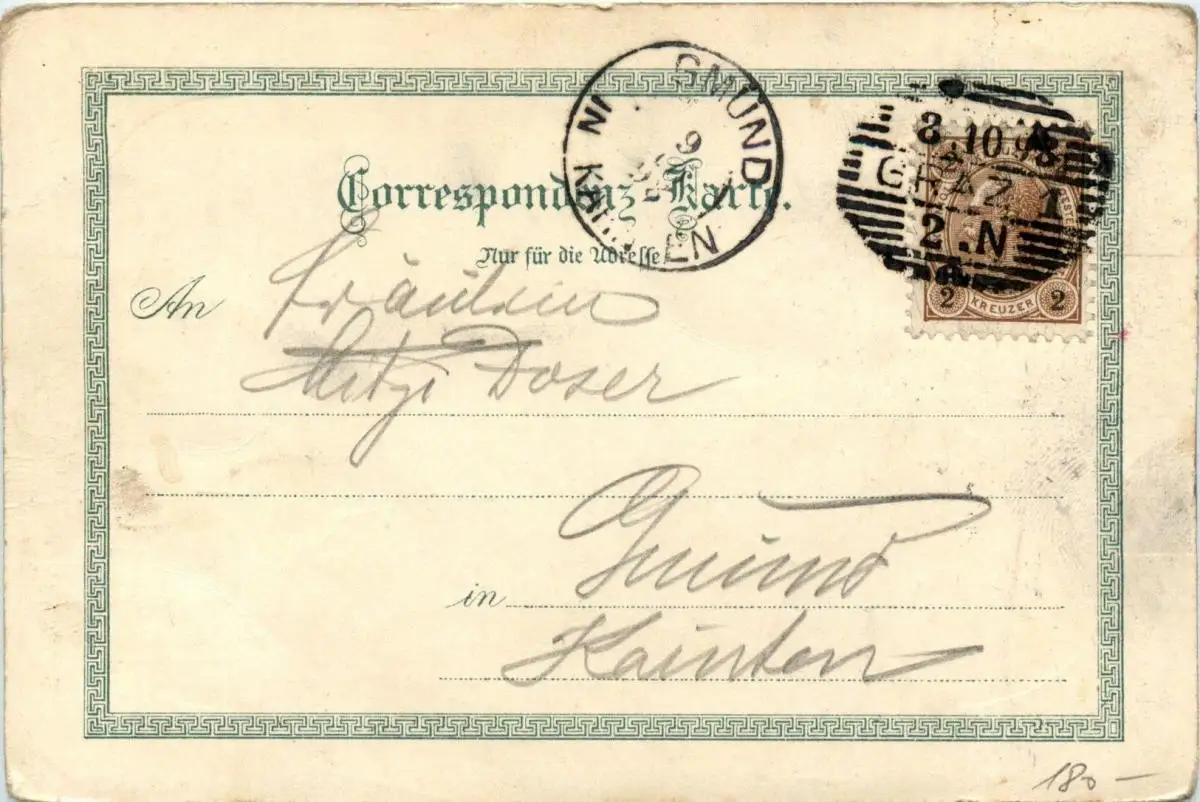 GMÜND
IN KÄRNTEN
9
3 10 98
GRAZ 1
2.N
2 KREUZER 2
Correspondenz-Karte.
Nur für die Adresse
An Fräulein
Mitzi Doser
in Gmünd
Kärnten
180 —